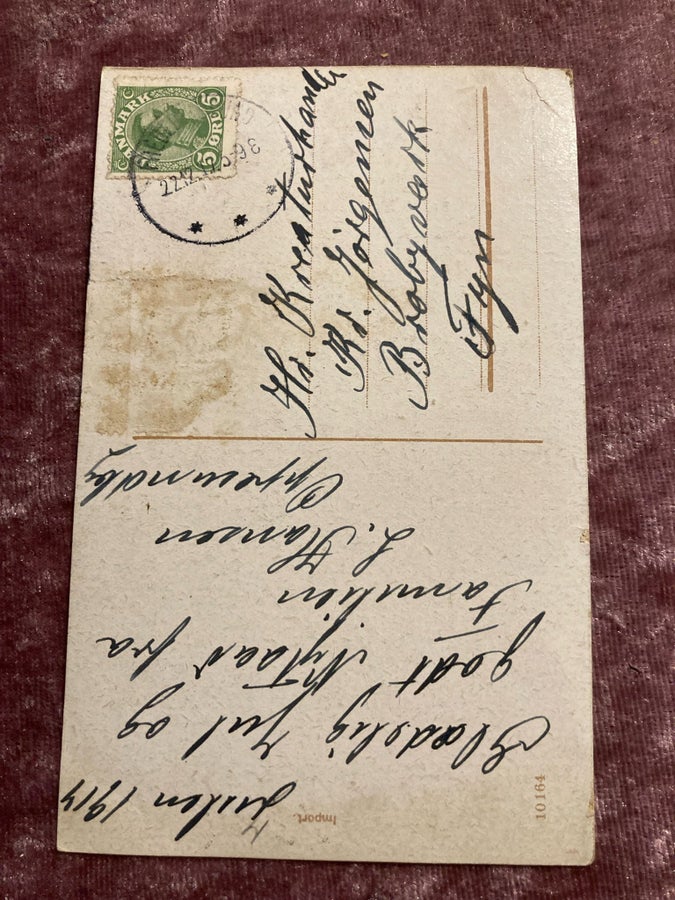 DANMARK
5 ØRE 5
22.12.17.5-9E
Hr. Kreaturhandler
Kr. Jörgensen
Brobyværk
Fyn
Julen 1917
Glædelig Jul og
godt Nytaar fra
Familien
L. Hansen
Import.
10164